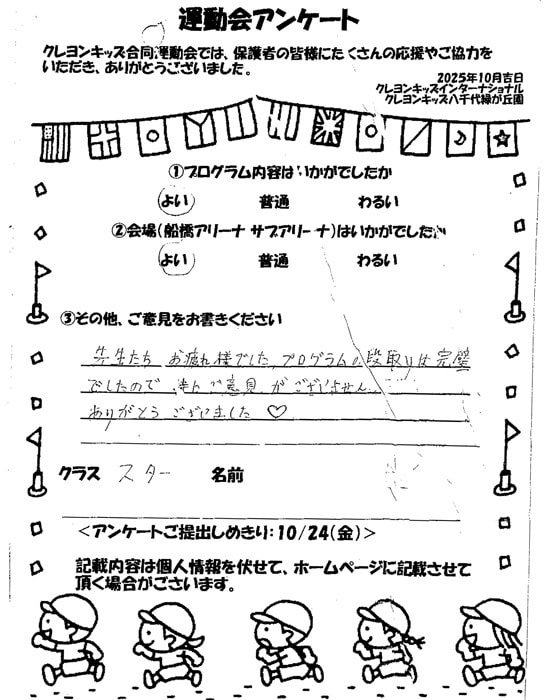 運動会アンケート
クレヨンキッズ合同運動会では、保護者の皆様にたくさんの応援やご協力を
いただき、ありがとうございました。
2025年10月吉日
クレヨンキッズインターナショナル
クレヨンキッズ八千代緑が丘園
①プログラム内容はいかがでしたか
よい 普通 わるい
②会場(船橋アリーナ サブアリーナ)はいかがでしたか
よい 普通 わるい
③その他、ご意見をお書きください
先生たち お疲れ様でした。プログラムの段取りは完璧
でしたので、 ご意見がございません。
ありがとうございました ♡
クラス スター 名前
<アンケートご提出しめきり:10/24(金)>
記載内容は個人情報を伏せて、ホームページに記載させて
頂く場合がございます。